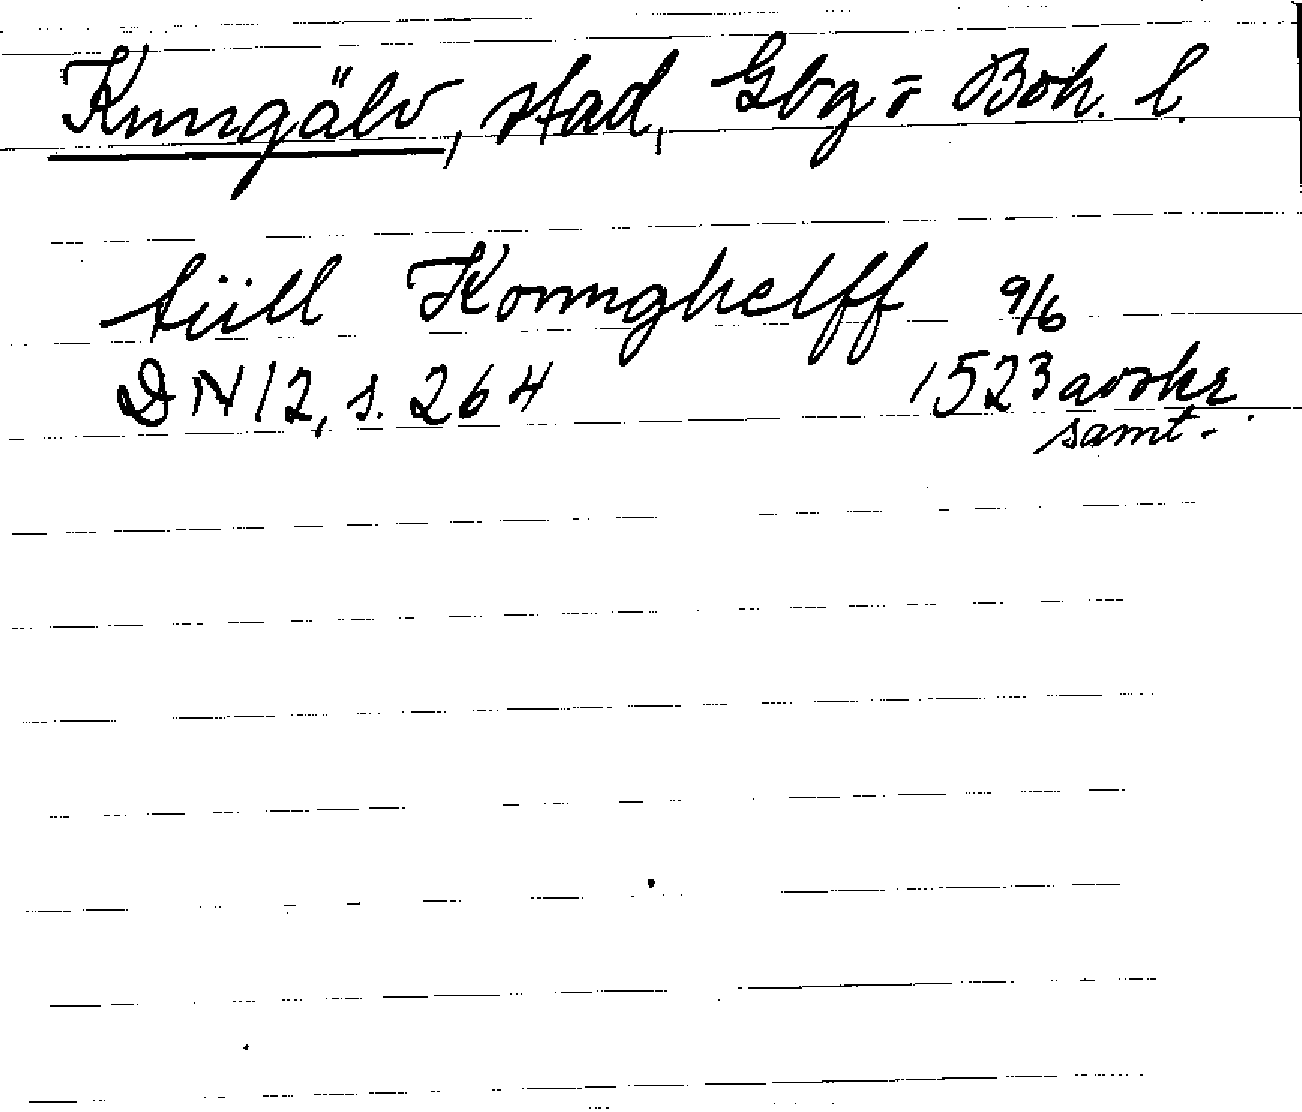 Kungälv, stad, Gbg o Boh. l.
tiill Konnghelff 9/6
DN 12, s. 264 1523 avskr.
samt.